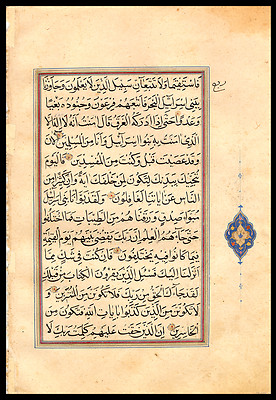 فَاسْتَقِيمَا وَلَا تَتَّبِعَانِّ سَبِيلَ الَّذِينَ لَا يَعْلَمُونَ وَجَاوَزْنَا
بِبَنِي اِسْرَائِيلَ الْبَحْرَ فَاَتْبَعَهُمْ فِرْعَوْنُ وَجُنُودُهُ بَغْيًا
وَعَدْوًا حَتَّى اِذَا اَدْرَكَهُ الْغَرَقُ قَالَ اٰمَنْتُ اَنَّهُ لَا اِلٰهَ اِلَّا
الَّذِي اٰمَنَتْ بِهِ بَنُوا اِسْرَائِيلَ وَاَنَا مِنَ الْمُسْلِمِينَ اٰلْاٰنَ
وَقَدْ عَصَيْتَ قَبْلُ وَكُنْتَ مِنَ الْمُفْسِدِينَ فَالْيَوْمَ
نُنَجِّيكَ بِبَدَنِكَ لِتَكُونَ لِمَنْ خَلْفَكَ اٰيَةً وَاِنَّ كَثِيرًا مِنَ
النَّاسِ عَنْ اٰيَاتِنَا لَغَافِلُونَ وَلَقَدْ بَوَّاْنَا بَنِي اِسْرَائِيلَ
مُبَوَّاَ صِدْقٍ وَرَزَقْنَاهُمْ مِنَ الطَّيِّبَاتِ فَمَا اخْتَلَفُوا
حَتَّى جَاءَهُمُ الْعِلْمُ اِنَّ رَبَّكَ يَقْضِي بَيْنَهُمْ يَوْمَ الْقِيٰمَةِ
فِيمَا كَانُوا فِيهِ يَخْتَلِفُونَ فَاِنْ كُنْتَ فِي شَكٍّ مِمَّا
اَنْزَلْنَا اِلَيْكَ فَسْئَلِ الَّذِينَ يَقْرَؤُنَ الْكِتَابَ مِنْ قَبْلِكَ
لَقَدْ جَاءَكَ الْحَقُّ مِنْ رَبِّكَ فَلَا تَكُونَنَّ مِنَ الْمُمْتَرِينَ وَ
لَا تَكُونَنَّ مِنَ الَّذِينَ كَذَّبُوا بِاٰيَاتِ اللهِ فَتَكُونَ مِنَ
الْخَاسِرِينَ اِنَّ الَّذِينَ حَقَّتْ عَلَيْهِمْ كَلِمَتُ رَبِّكَ لَا